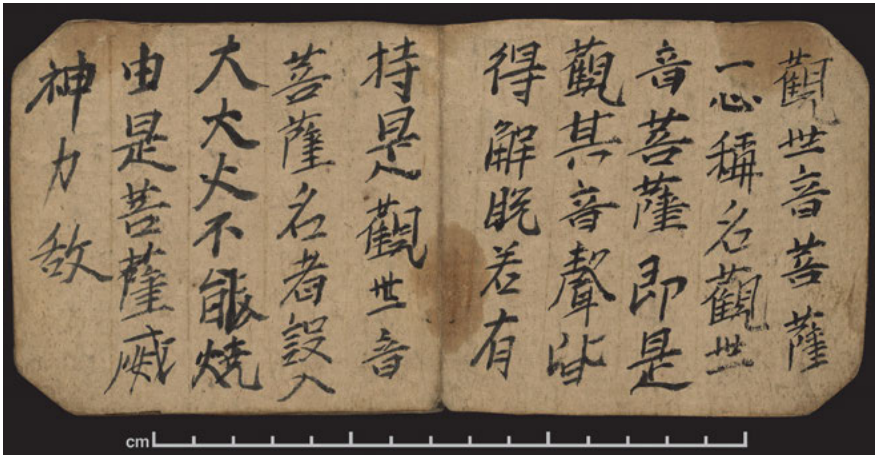 觀世音菩薩
一心稱名觀世
音菩薩即是
觀其音聲皆
得解脫若有
持是觀世音
菩薩名者設入
大大火不能燒
由是菩薩威
神力故
cm